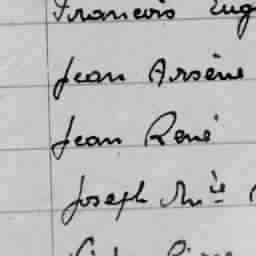 François Eug
Jean Arsène
Jean René
Joseph Mie